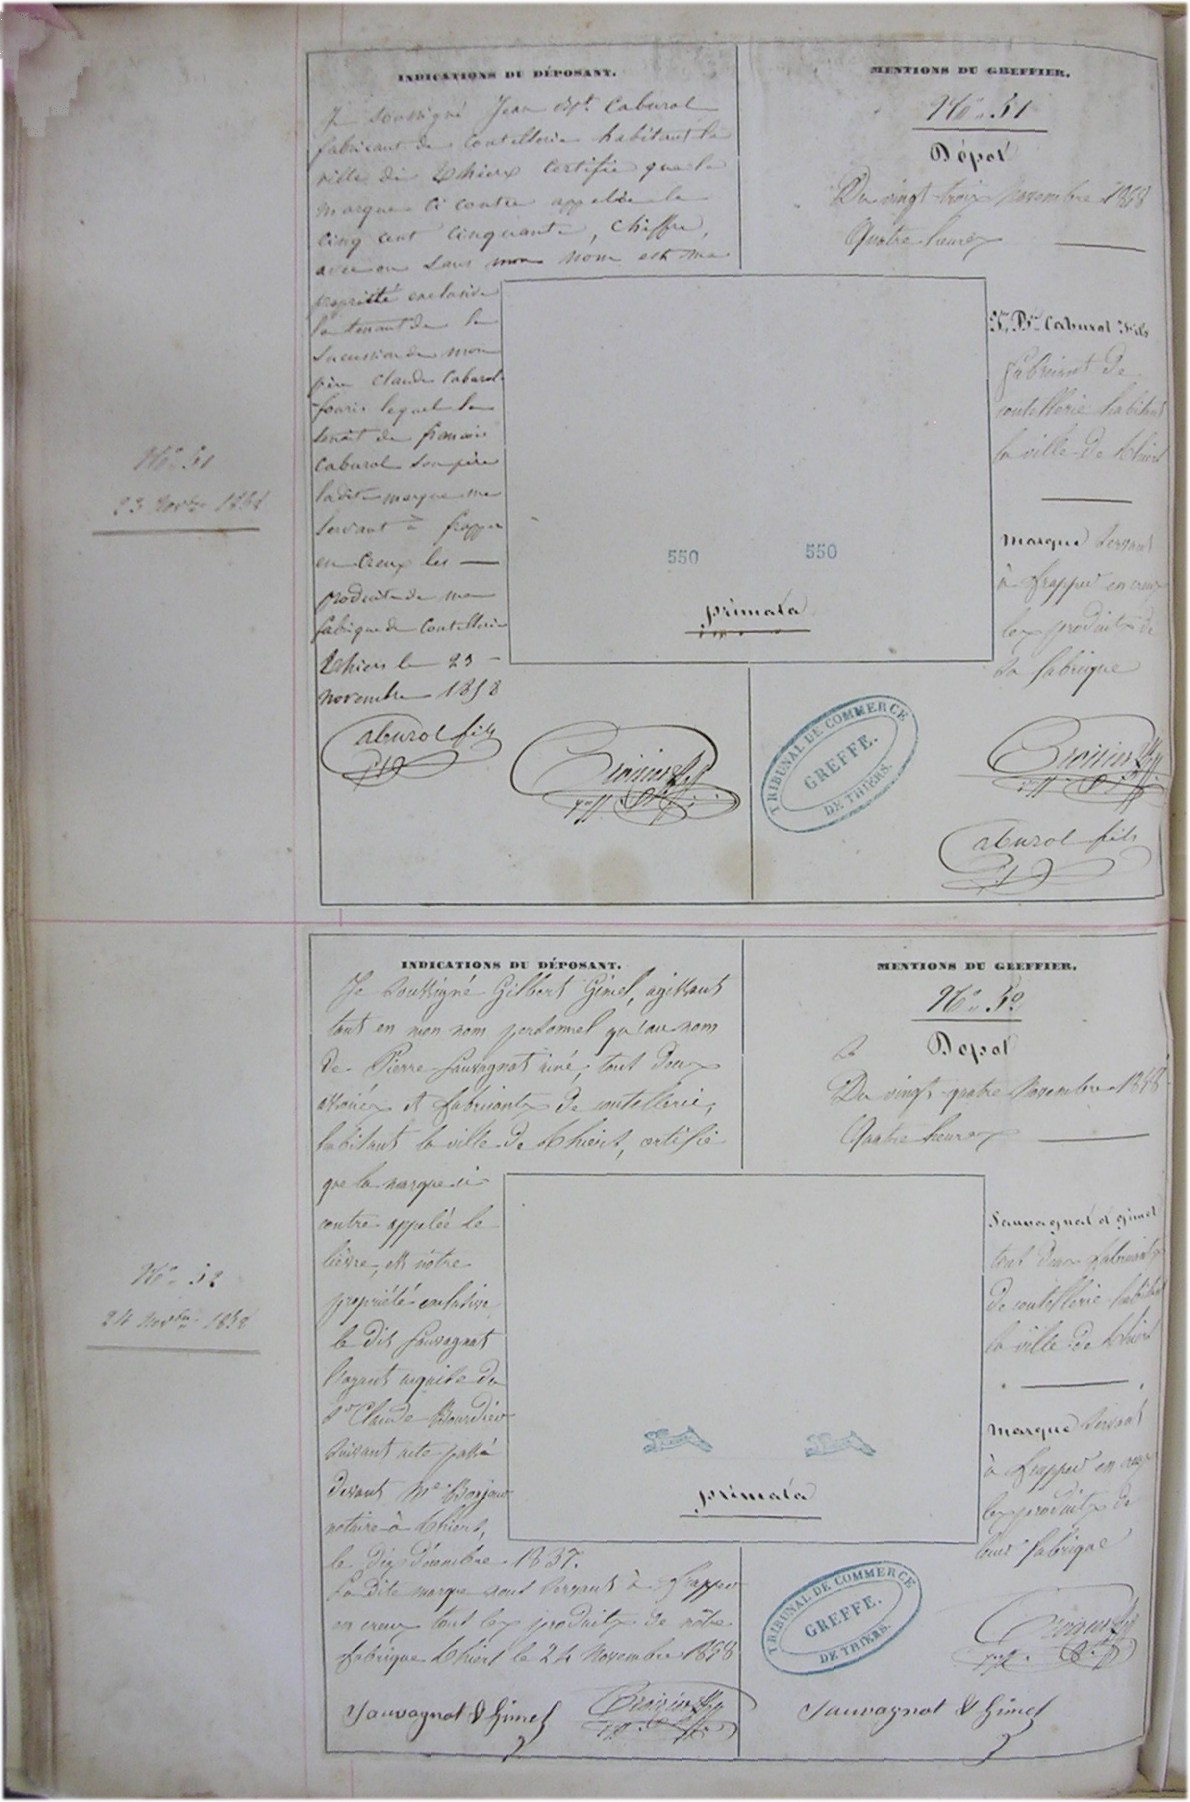 INDICATIONS DU DÉPOSANT.
Je soussigné Jean Bpte Caburol
fabricant de Coutellerie habitant la
ville de Thiers Certifie que la
marque ci contre appelée le
cinq cent cinquante, chiffre,
avec ou sans mon nom est ma
propriété exclusive
la tenant de la
sucession de mon
père Claude Cabarol
lequel la
tenait de francois
Caburol son père
ladite marque me
servant à frapper
en Creux les —
produits de ma
fabrique de Coutellerie
Thiers le 23 -
novembre 1858
Caburol fils
MENTIONS DU GREFFIER.
No. 51
Dépot
Du vingt trois Novembre 1858
Quatre heures
Jn Bte Caburol Fils
fabricant de
coutellerie habitant
la ville de Thiers
marque servant
à frapper en creux
les produits de
sa fabrique
550 550
primata
TRIBUNAL DE COMMERCE
GREFFE.
DE THIERS.
Caburol fils
No. 51
23 Novbre 1858
INDICATIONS DU DÉPOSANT.
Je soussigné Gilbert Gimel, agissant
tant en mon nom personnel qu'au nom
de Pierre Sauvagnat ainé, tout deux
associés et fabricants de coutellerie,
habitant la ville de Thiers, certifie
que la marque ci
contre appelée le
lièvre, est nôtre
propriété exclusive,
le dit Sauvagnat
l'ayant acquise du
Sr Claude Bourdier
suivant acte passé
devant Me
notaire à Thiers,
le dix décembre 1837.
La dite marque nous servant à frapper
en creux tout les produits de nôtre
fabrique Thiers le 24 Novembre 1858
Sauvagnat & Gimel
MENTIONS DU GREFFIER.
No. 52
Depot
Du vingt quatre Novembre 1858
Quatre heures
Sauvagnat et Gimel
tout deux fabricants
de coutellerie habitant
la ville de Thiers
marque servant
à frapper en creux
les produits de
leur fabrique
primata
TRIBUNAL DE COMMERCE
GREFFE.
DE THIERS.
Sauvagnat & Gimel
No. 52
24 Novbre 1858